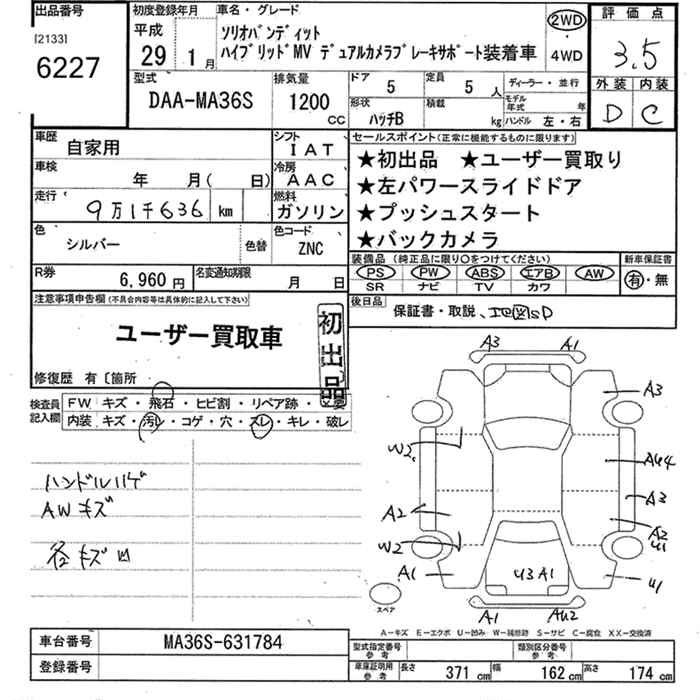 出品番号
[2133]
6227
初度登録年月
平成
29年 1月
車名・グレード
ソリオバンディット
ハイブリッドMV デュアルカメラブレーキサポート装着車
2WD
4WD
評価点
3.5
外装 内装
D C
型式
DAA-MA36S
排気量
1200
CC
ドア
5
定員
5人
形状
ハッチB
積載
kg
ディーラー・並行
モデル年式 年
ハンドル 左・右
車歴
自家用
シフト
IAT
車検
年 月( 日)
冷房
AAC
走行
9万1千636 km
燃料
ガソリン
色
シルバー
色替
色コード
ZNC
R券
6,960円
名変通知期限
月 日
セールスポイント(正常に機能するものに限ります)
★初出品 ★ユーザー買取り
★左パワースライドドア
★プッシュスタート
★バックカメラ
装備品(純正品に限り○をつけてください)
PS PW ABS エアB AW
SR ナビ TV カワ
新車保証書
有・無
後日品
保証書・取説、
注意事項申告欄(不具合内容等は具体的に記入して下さい)
ユーザー買取車
初出品
修復歴 有〔箇所
検査員記入欄
FW キズ・飛石・ヒビ割・リペア跡・
内装 キズ・汚レ・コゲ・穴・スレ・キレ・破レ
ハンドルハゲ
AWキズ
各キズ凹
A3 A1
A3
W2
A44
A3
A2
A2
W2
A1
43 A1
A1
スペア
A-キズ E-エクボ U-凹み W-補修跡 S-サビ C-腐食 XX-交換済
車台番号
MA36S-631784
登録番号
型式指定番号
参考
類別区分番号
参考
車庫証明用
参考
長さ 371 cm
幅 162 cm
高さ 174 cm